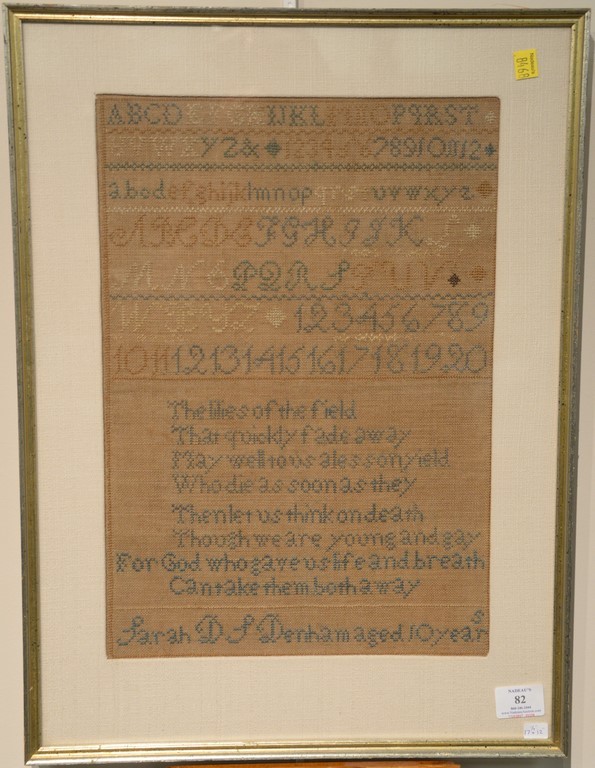 8468
ABCD IJKL O PQRST
YZ& 1234 789101112
abcdefghijklmnop uvwxyz
ABCDEFGHIJKL
MNOPQRSTUV
WXYZ 123456789
1011121314151617181920
The lilies of the field
That quickly fade away
May well to us a lesson yield
Who die as soon as they
Then let us think on death
Though we are young and gay
For God who gave us life and breath
Can take them both away
Sarah D S Denham aged 10 years
NADEAU'S
82